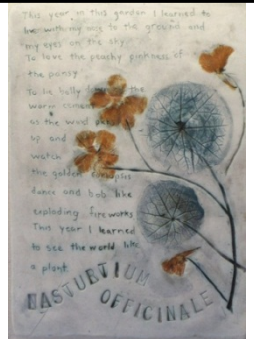 This year in this garden I learned to
live with my nose to the ground and
my eyes on the sky.
To love the peachy pinkness of
the pansy.
To lie belly down on the
warm cement
as the wind picks
up and
watch
the golden
dance and bob like
exploding fireworks
This year I learned
to see the world like
a plant.
NASTURTIUM
OFFICINALE